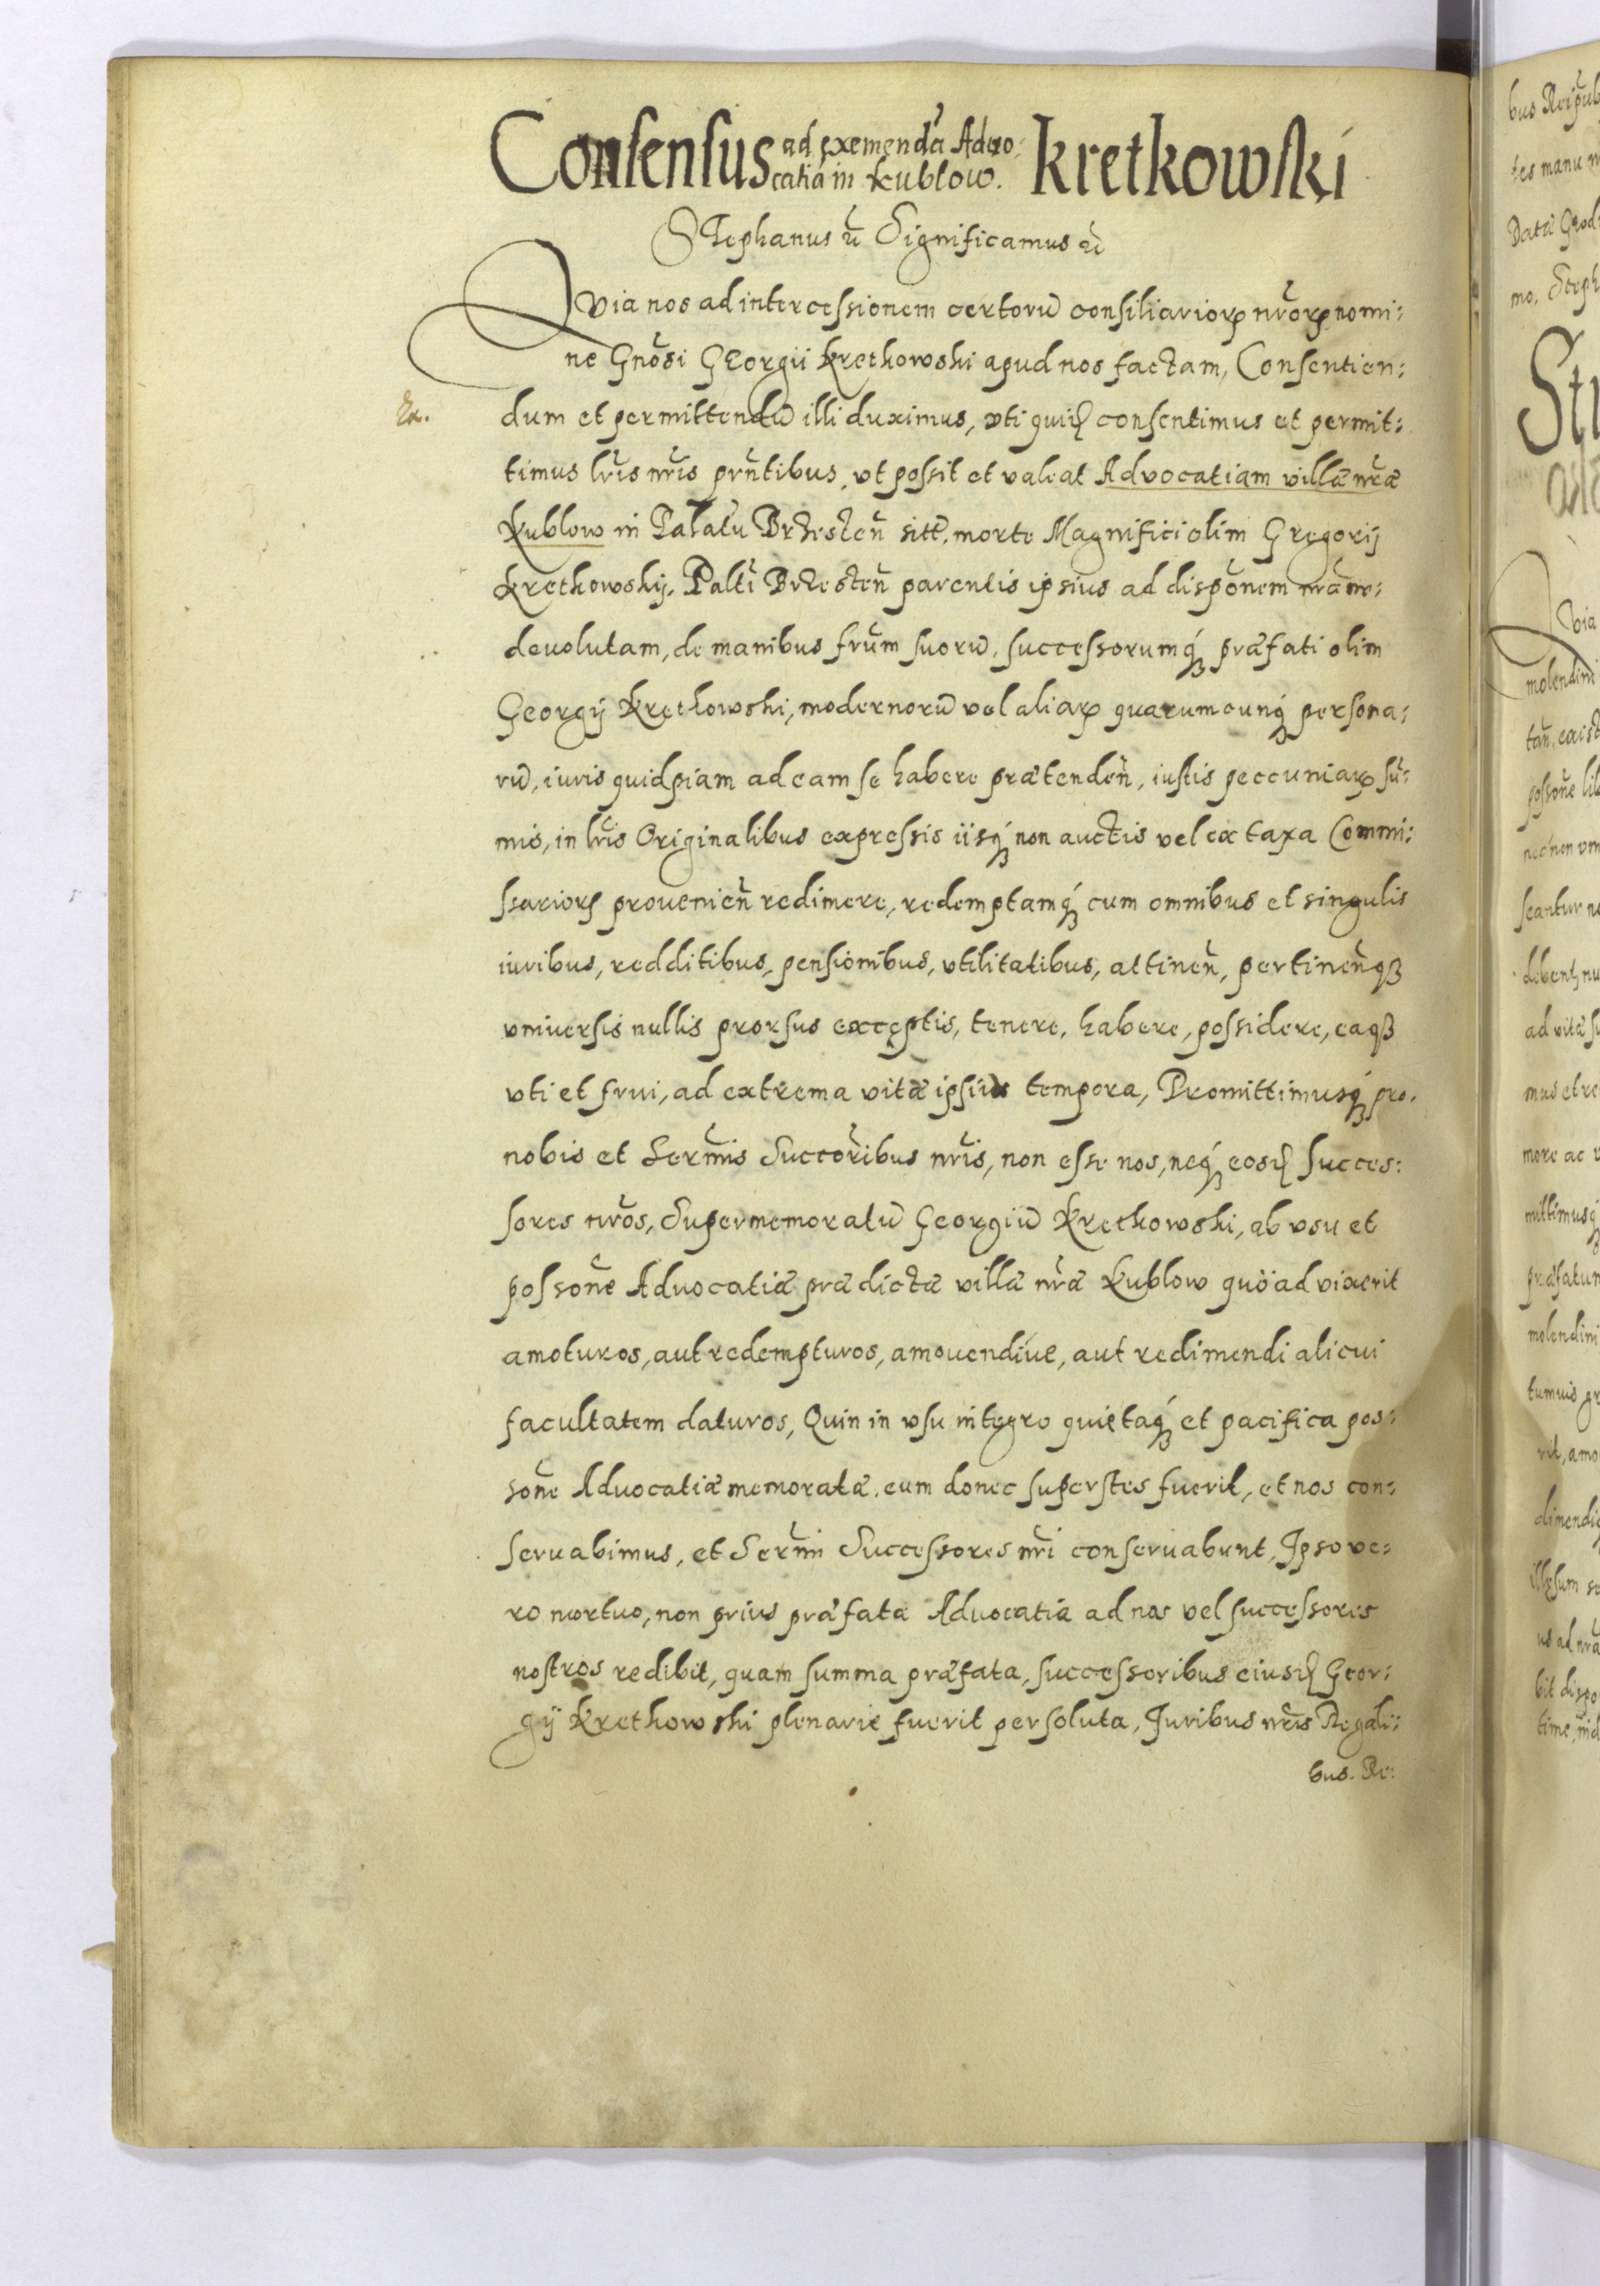 Consensus ad exemendā Aduo: catiā in Kublow. Kretkowski
Stephanus etc̃ Significamus etc̃
Quia nos ad intercessionem certorū consiliarioꝝ nr̃oꝝ nomi:
ne Gnõsi Georgii Krethowski apud nos factam, Consentien:
Ex.
dum et permittendū illi duximus, vti quidē consentimus et permit:
timus lr̃is nr̃is pñtibus, vt possit et valeat Advocatiam villæ nr̃æ
Kublow in Palatu Brzesten̄ sitā, morte Magnifici olim Gregorij
Krethowskij, Palti Brzesten̄ parentis ipsius ad dispõnem nr̃am
deuolutam, de manibus fr̃um suorū, successorumq́ꝫ præfati olim
Georgij Krethowski, modernorū vel aliaꝝ quarumcunq́ꝫ persona:
rū, iuris quidpiam ad eam se habere prætenden̄, iustis peccuniaꝝ sū:
mis, in lr̃is Originalibus expressis iisq́ꝫ non auctis vel ex taxa Commi:
ssarioꝝ prouenien̄ redimere, redemptamq́ꝫ cum omnibus et singulis
iuribus, redditibus, pensionibus, vtilitatibus, attinen̄, pertinen̄qꝫ
vniuersis nullis prorsus exceptis, tenere, habere, possidere, eaqꝫ
vti et frui, ad extrema vitæ ipsius tempora, Promittimusq́ꝫ pro
nobis et Serm̃is Succoribus nr̃is, non esse nos, neq́ꝫ eosd̄ Succes:
sores nr̃os, Supermemoratū Georgiū Krethowski, ab vsu et
possõne Aduocatiæ prædictæ villæ nr̃æ Kublow quoad vixerit
amoturos, aut redempturos, amouendiue, aut redimendi alicui
facultatem daturos, Quin in vsu integro quietaq́ꝫ et pacifica pos:
sõne Aduocatiæ memoratæ, eum donec superstes fuerit, et nos con:
seruabimus, et Serm̃i Successores nr̃i conseruabunt, Ipso ve:
ro mortuo, non prius præfata Aduocatia ad nos vel successores
nostros redibit, quam summa præfata, successoribus eiusd̄ Geor:
gij Krethowski plenarie fuerit persoluta, Iuribus nr̃is Regali:
bus. Re: